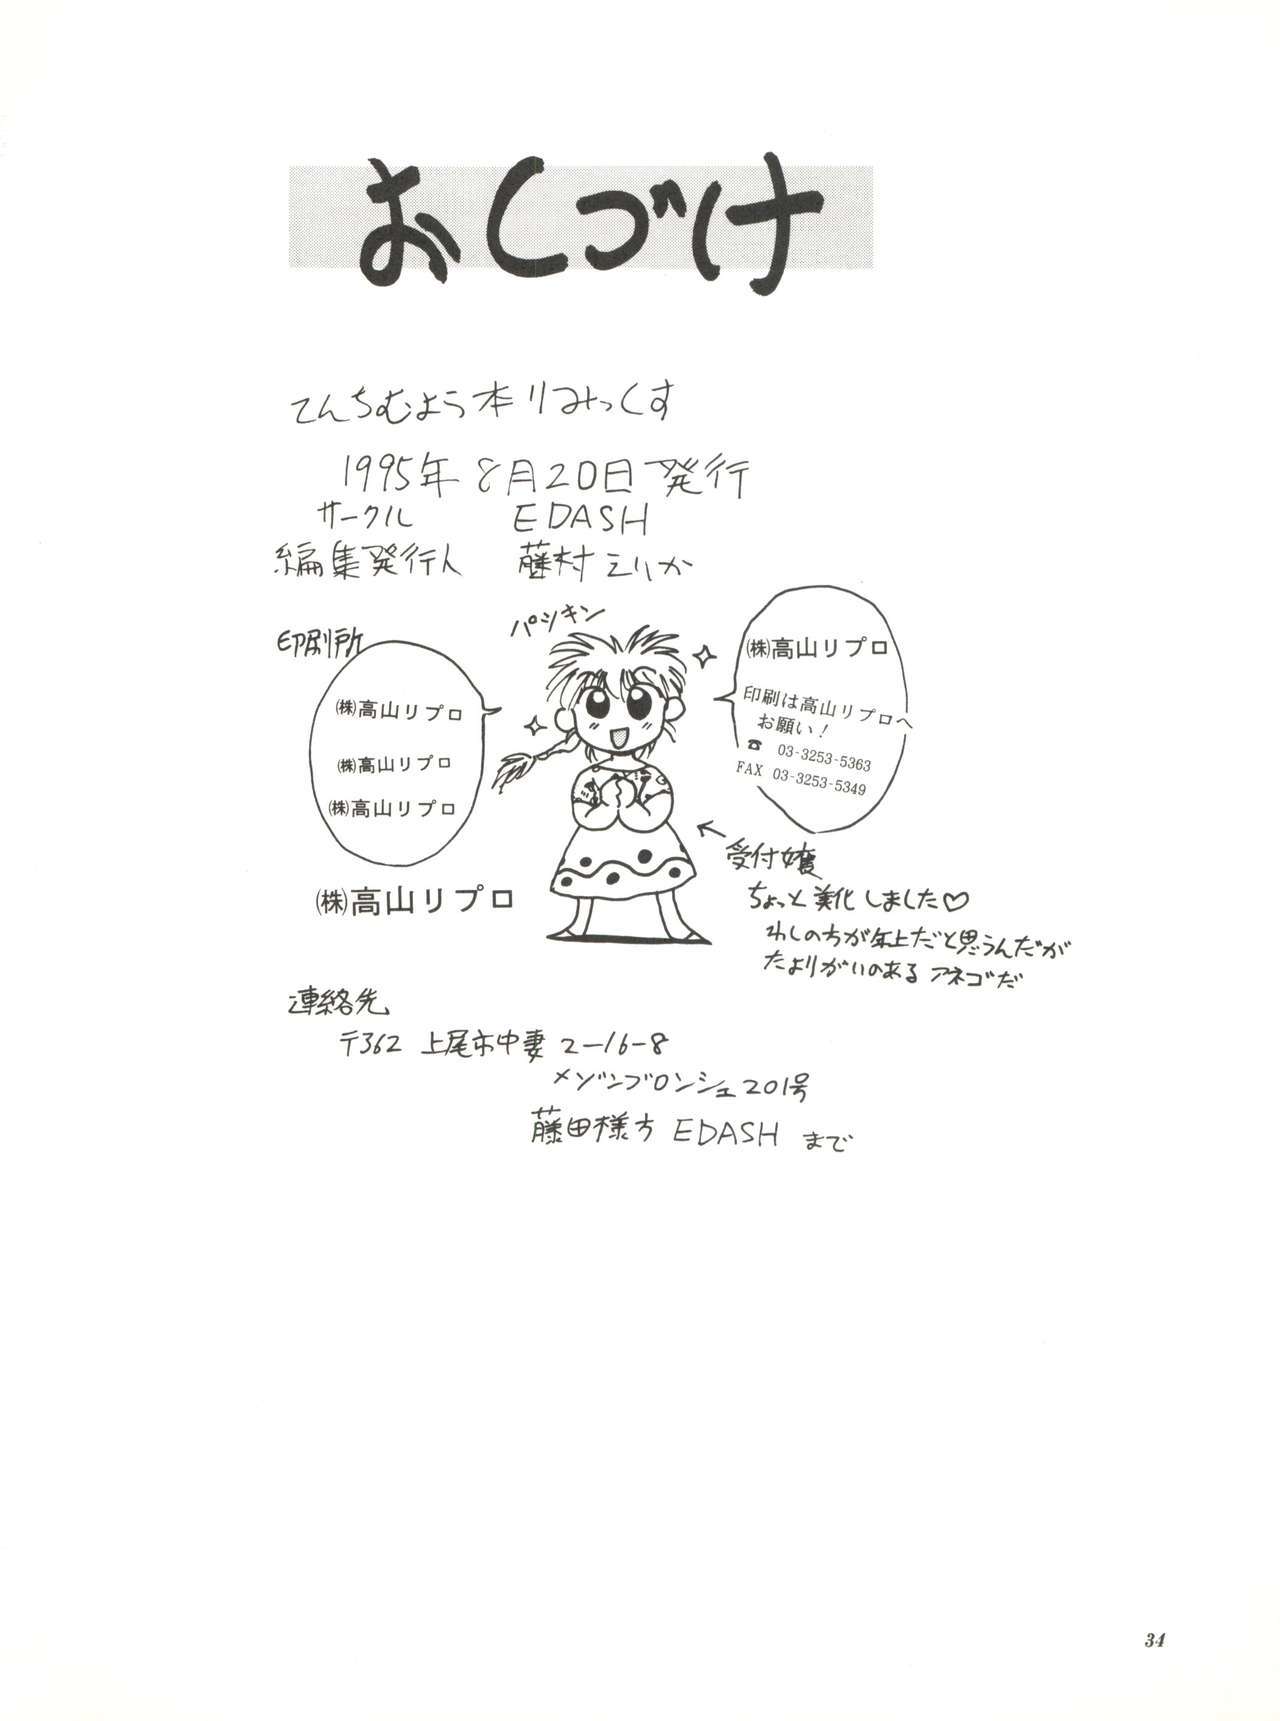 おくづけ
てんちむよう本りみっくす
1995年8月20日発行
サークル EDASH
編集発行人 藤村えりか
印刷所
㈱高山リプロ
㈱高山リプロ
㈱高山リプロ
㈱高山リプロ
パツキン
㈱高山リプロ
印刷は高山リプロへ
お願い!
☎ 03-3253-5363
FAX 03-3253-5349
←受付嬢
ちょっと美化しました♡
わしの方が年上だと思うんだが
たよりがいのあるアネゴだ
連絡先
〒362 上尾市中妻2-16-8
メゾンブロンシェ201号
藤田様方 EDASH まで
34